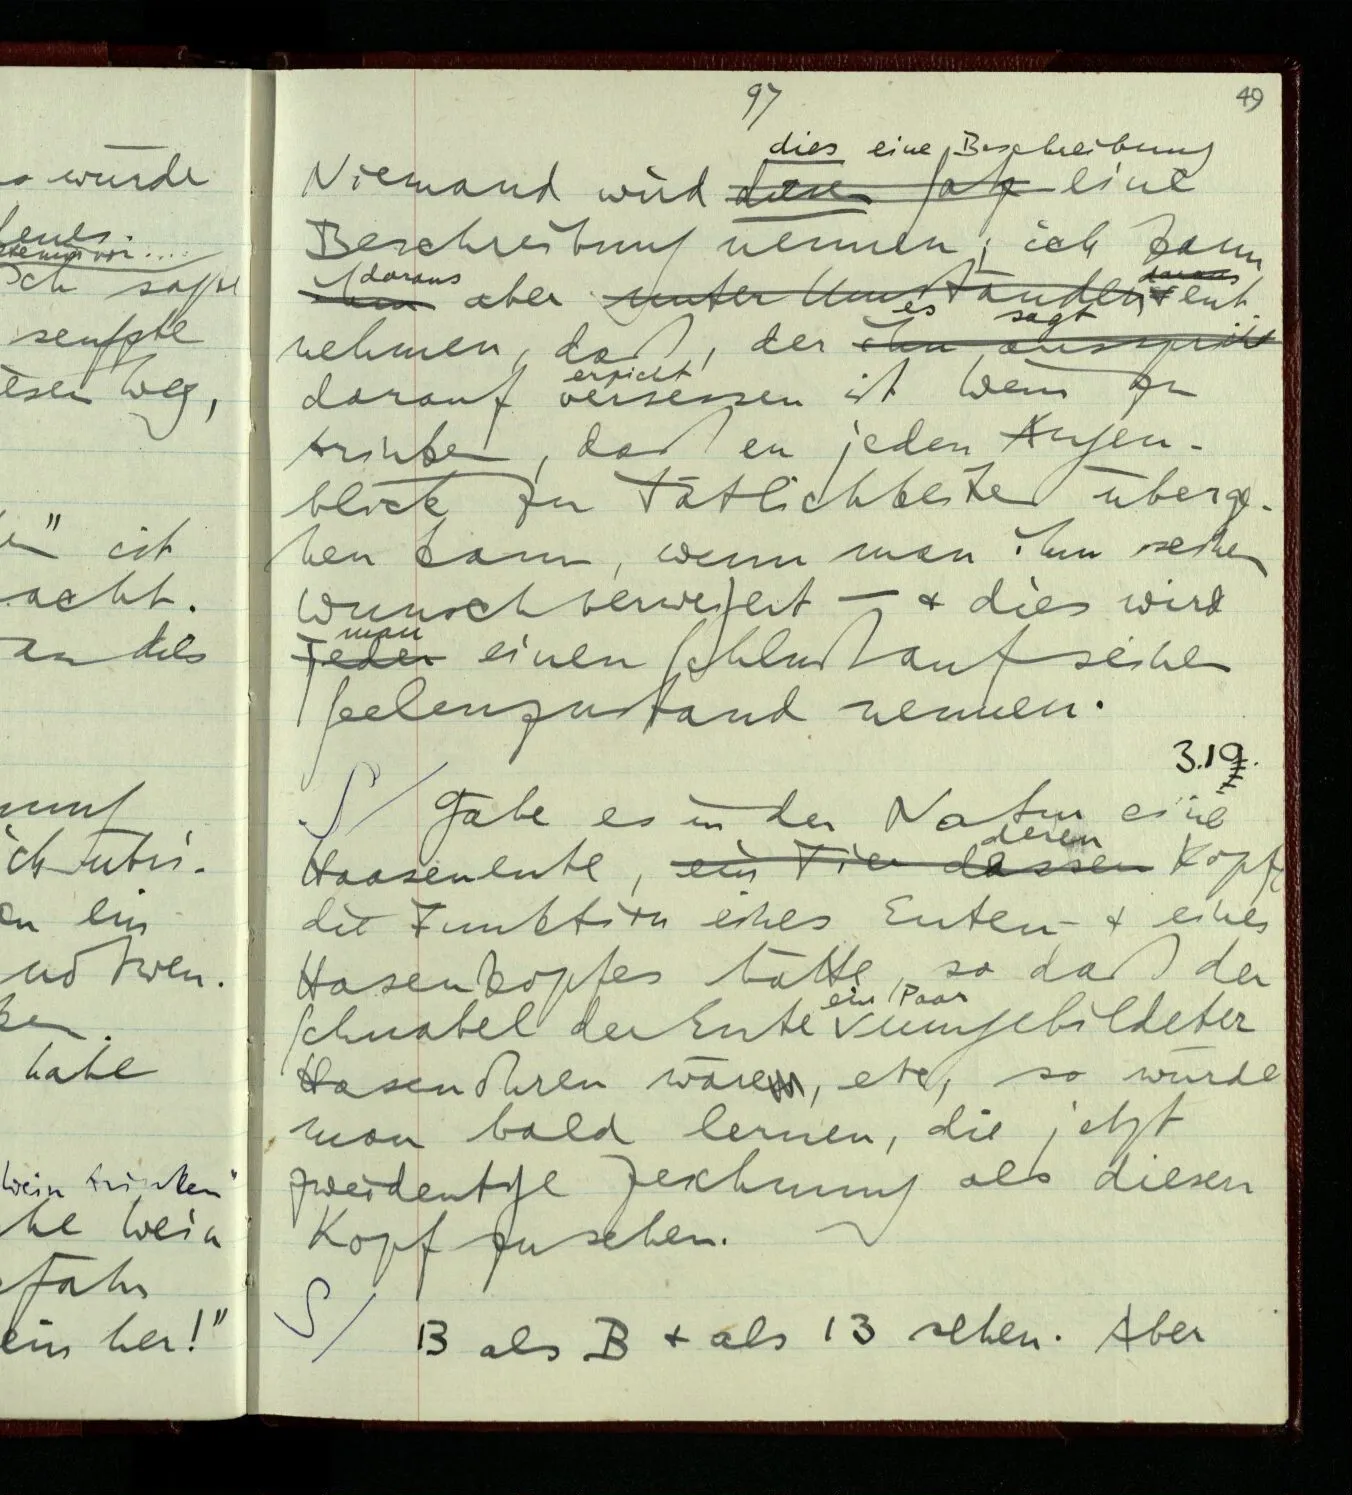 97
49
dies eine Beschreibung
Niemand wird diesen Satz eine
Beschreibung nennen; ich kann
daraus daraus
ihm aber unter Umständen ent-
es sagt
nehmen, daß, der ihn ausspricht
erpicht
darauf versessen ist Wein zu
trinken, daß er jeden Augen-
blick zu Tätlichkeiten überge-
hen kann, wenn man ihm seinen
Wunsch verweigert — & dies wird
man
Jeder einen Schluß auf seinen
Seelenzustand nennen.
3.19.
S / Gäbe es in der Natur eine
deren
Haasenente, ein Tier dessen Kopf
die Funktion eines Enten- & eines
Hasenkopfes hätte, so daß der
ein Paar
Schnabel der Ente umgebildeter
Hasenohren wären, etc, so würde
man bald lernen, die jetzt
zweideutige Zeichnung als diesen
Kopf zu sehen.
S / B als B & als 13 sehen. Aber
würde
Ich sagte
seufzte
diesen Weg,
" ist
acht.
an des
ein
habe
Wein trinken"
Wein
her!"